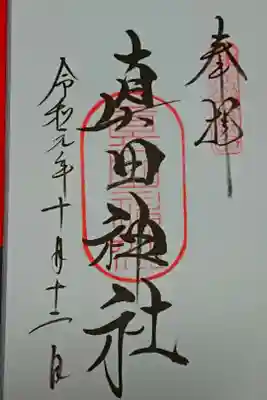 奉拝
真田神社
令和元年十月十二日